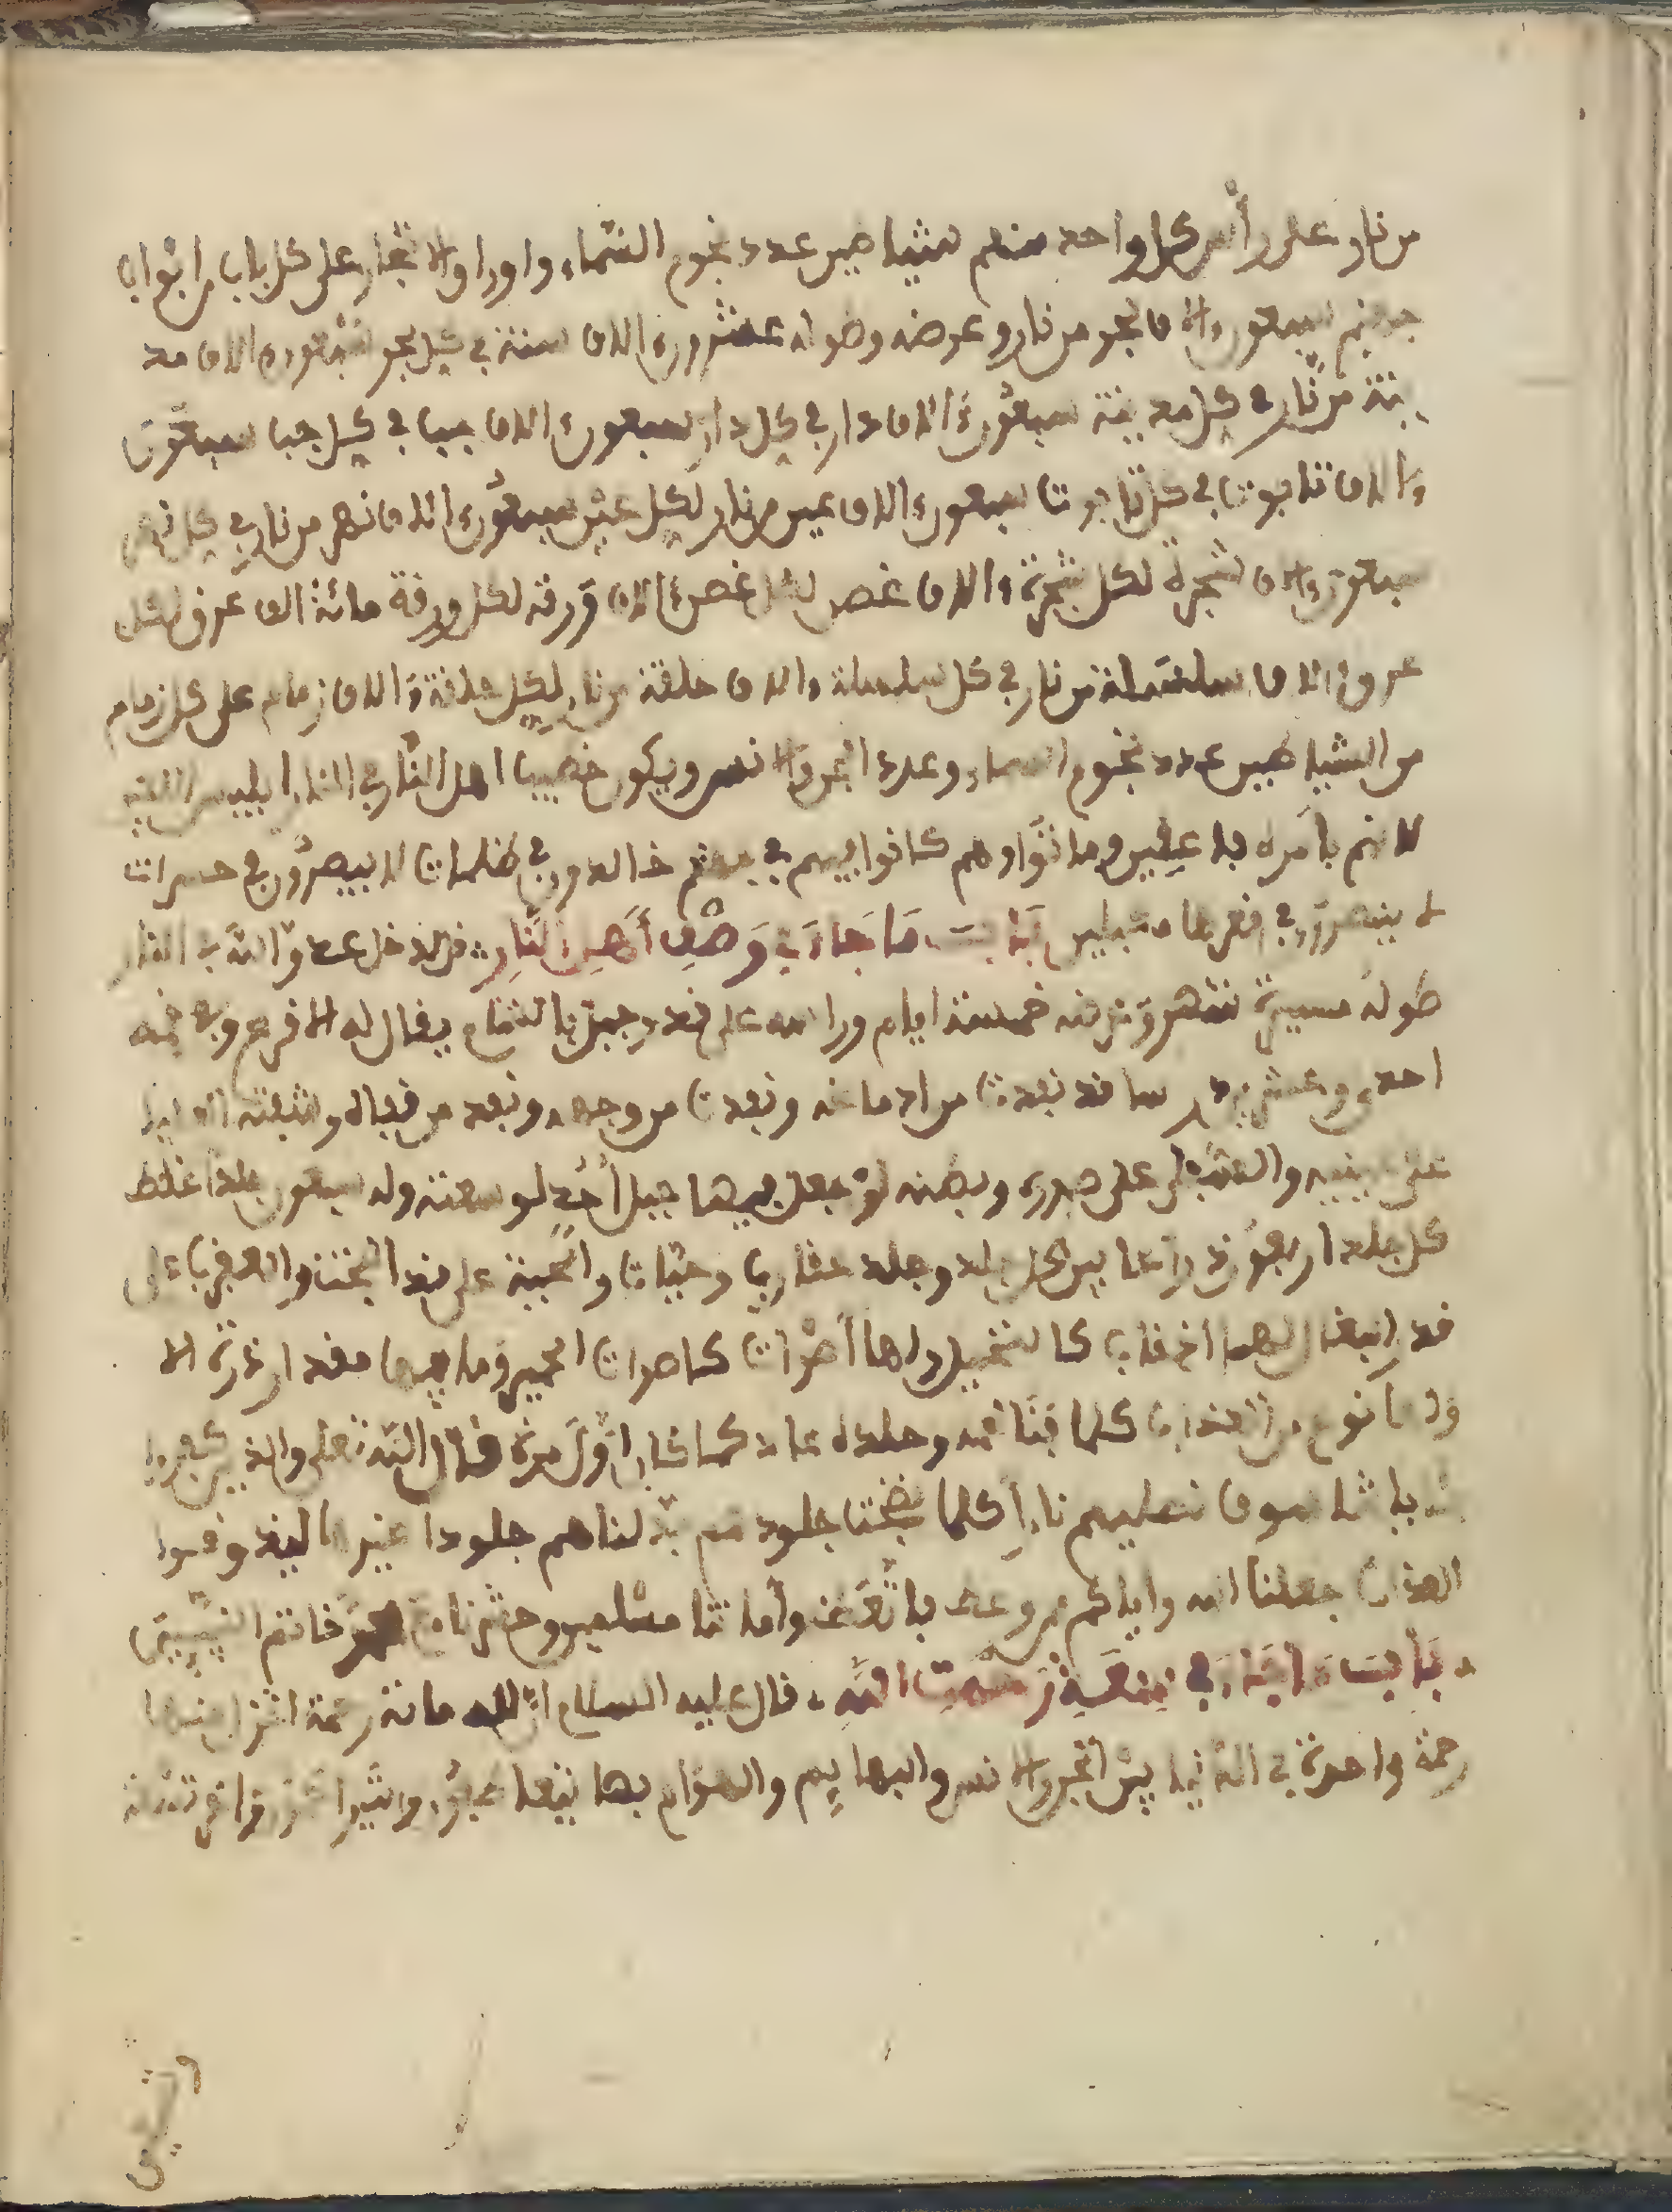 من نار على رأس كل واحد منهم شياطين عدد نجوم السماء واوراق الاشجار على كل باب من ابواب
جهنم سبعون الاف بحر من نار وعرضه وطوله عشرون ءالاف سنة في كل بحر سبعون ءالاف مد
ينة من نار في كل مدينة سبعون ءالاف دار في كل دار سبعون ءالاف جب في كل جب سبعون
ءالاف تابوت في كل تابوت سبعون ءالاف عين من نار لكل عين سبعون ءالاف نهر من نار في كل نهر
سبعون ءالاف شجرة لكل شجرة ءالاف غصن لكل غصن ءالاف ورقة لكل ورقة مائة الف عرق لكل
عرق ءالاف سلسلة من نار في كل سلسلة ءالاف حلقة من نار لكل حلقة ءالاف زمام على كل زمام
من الشياطين عدد نجوم السماء وعدد الجن والانس ويكون خطيب اهل النار في النار ابليس اللعين
لانهم بأمره فاعلين وماتوا وهم كانوا فيهم في جهنم خالدون في ظلمات لا يبصرون في حسرات
لا ينصرون في قعرها مقبلين باب ما جاء في وصف أهل النار فإذا دخل عدو الله في النار
طوله مسيرة شهر وعرضه خمسة ايام ورأسه على قدر جبل بالشام يقال له الاقرع وفي فمه
احد وعشرون ضرسا قد نفدت من ادماغه ونفدت من وجهه ونفد من قفاه وشفته العليا
على عينيه والسفلى على صدره وبطنه لو جعل فيها جبل أحد لوسعته وله سبعون جلدا غلظ
كل جلد اربعون ذراعا بين كل جلد وجلد عقارب وحيات والحية على قدر البخت والعقرب على
قدر البغال لهما اذناب كالنخيل ولها أصوات كاصوات الحمير وما فيها مقدار ذرة الا
ولها نوع من العذاب كلما فنا لحمه وجلده عاد كما كان اول مرة قال الله تعلى والذين كفروا
باياتنا سوف نصليهم نارا كلما نضجت جلودهم بدلناهم جلودا غيرها ليذوقوا
العذاب جعلنا الله واياكم من وعد فأتعظ وأماتنا مسلمين وحشرنا مع محمد خاتم النبيين
باب ما جاء في سعة رحمت الله قال عليه السلام ان لله مائة رحمة انزل منها
رحمة واحدة في الدنيا بين الجن والانس والبهايم والهوام بها يتعاطفون ويتراحمون واخر تسعة